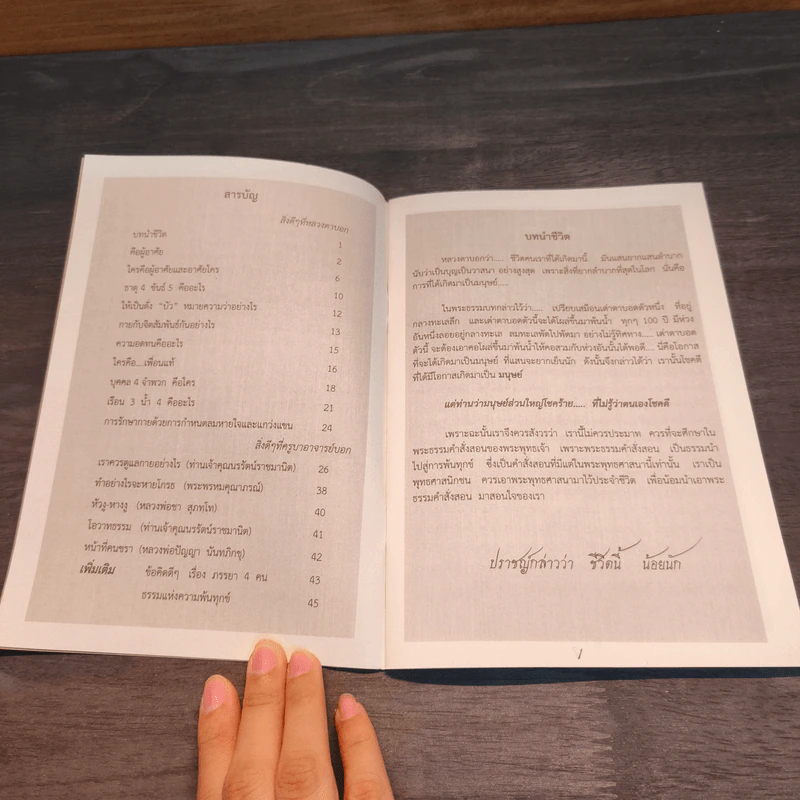 สารบัญ
สิ่งดีๆที่หลวงตาบอก
บทนำชีวิต 1
คือผู้อาศัย 2
ใครคือผู้อาศัยและอาศัยใคร 6
ธาตุ 4 ขันธ์ 5 คืออะไร 10
ให้เป็นดั่ง "บัว" หมายความว่าอย่างไร 12
กายกับจิตสัมพันธ์กันอย่างไร 13
ความอดทนคืออะไร 15
ใครคือ....เพื่อนแท้ 16
บุคคล 4 จำพวก คือใคร 18
เรือน 3 น้ำ 4 คืออะไร 21
การรักษากายด้วยการกำหนดลมหายใจและแกว่งแขน 24
สิ่งดีๆที่ครูบาอาจารย์บอก
เราควรดูแลกายอย่างไร (ท่านเจ้าคุณนรรัตน์ราชมานิต) 26
ทำอย่างไรจะหายโกรธ (พระพรหมคุณาภรณ์) 38
หัวงู-หางงู (หลวงพ่อชา สุภทฺโท) 40
โอวาทธรรม (ท่านเจ้าคุณนรรัตน์ราชมานิต) 41
หน้าที่คนชรา (หลวงพ่อปัญญา นันทภิกขุ) 42
เพิ่มเติม ข้อคิดดีๆ เรื่อง ภรรยา 4 คน 43
ธรรมแห่งความพ้นทุกข์ 45
บทนำชีวิต
หลวงตาบอกว่า..... ชีวิตคนเราที่ได้เกิดมานี้ มันแสนยากแสนลำบาก
นับว่าเป็นบุญเป็นวาสนา อย่างสูงสุด เพราะสิ่งที่ยากลำบากที่สุดในโลก นั่นคือ
การที่ได้เกิดมาเป็นมนุษย์....
ในพระธรรมบทกล่าวไว้ว่า..... เปรียบเสมือนเต่าตาบอดตัวหนึ่ง ที่อยู่
กลางทะเลลึก และเต่าตาบอดตัวนี้จะได้โผล่ขึ้นมาพ้นน้ำ ทุกๆ 100 ปี มีห่วง
อันหนึ่งลอยอยู่กลางทะเล ลมทะเลพัดไปพัดมา อย่างไม่รู้ทิศทาง.... เต่าตาบอด
ตัวนี้ จะต้องเอาคอโผล่ขึ้นมาพ้นน้ำให้คอสวมกับห่วงอันนั้นได้พอดี.... นี่คือโอกาส
ที่จะได้เกิดมาเป็นมนุษย์ ที่แสนจะยากเย็นนัก ดังนั้นจึงกล่าวได้ว่า เรานั้นโชคดี
ที่ได้มีโอกาสเกิดมาเป็น มนุษย์
แต่ท่านว่ามนุษย์ส่วนใหญ่โชคร้าย..... ที่ไม่รู้ว่าตนเองโชคดี
เพราะฉะนั้นเราจึงควรสังวรว่า เรานี้ไม่ควรประมาท ควรที่จะศึกษาใน
พระธรรมคำสั่งสอนของพระพุทธเจ้า เพราะพระธรรมคำสั่งสอน เป็นธรรมนำ
ไปสู่การพ้นทุกข์ ซึ่งเป็นคำสั่งสอนที่มีแต่ในพระพุทธศาสนานี้เท่านั้น เราเป็น
พุทธศาสนิกชน ควรเอาพระพุทธศาสนามาไว้ประจำชีวิต เพื่อน้อมนำเอาพระ
ธรรมคำสั่งสอน มาสอนใจของเรา
ปราชญ์กล่าวว่า ชีวิตนี้ น้อยนัก
1